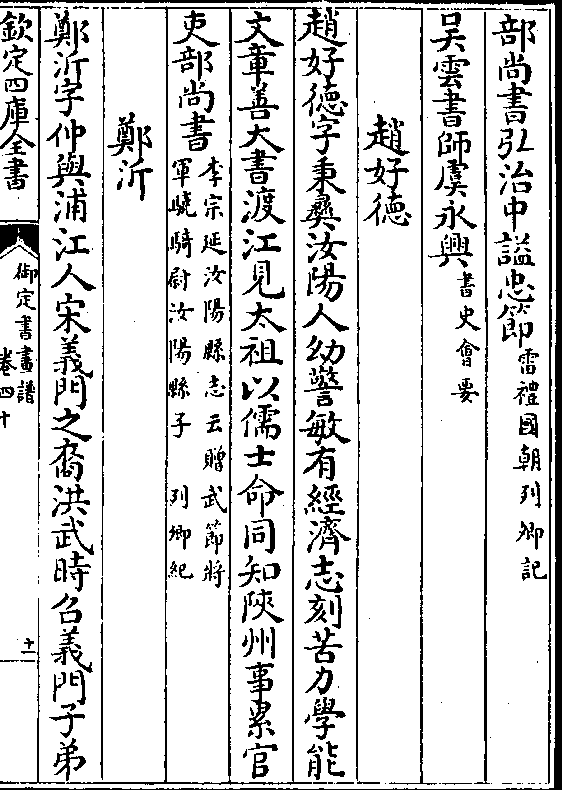 部尚書弘治中謚忠節雷禮國朝列卿記
吴雲書師虞永興書史會要
趙好德
趙好德字秉彞汝陽人幼警敏有經濟志刻苦力學能
文章善大書渡江見太祖以儒士命同知陜州事累官
吏部尚書李宗延汝陽縣志云贈武節將
軍驍騎尉汝陽縣子 列卿紀
鄭沂
鄭沂字仲與浦江人宋義門之裔洪武時召義門子弟
欽定四庫全書
御定書畫譜
卷四十
十一